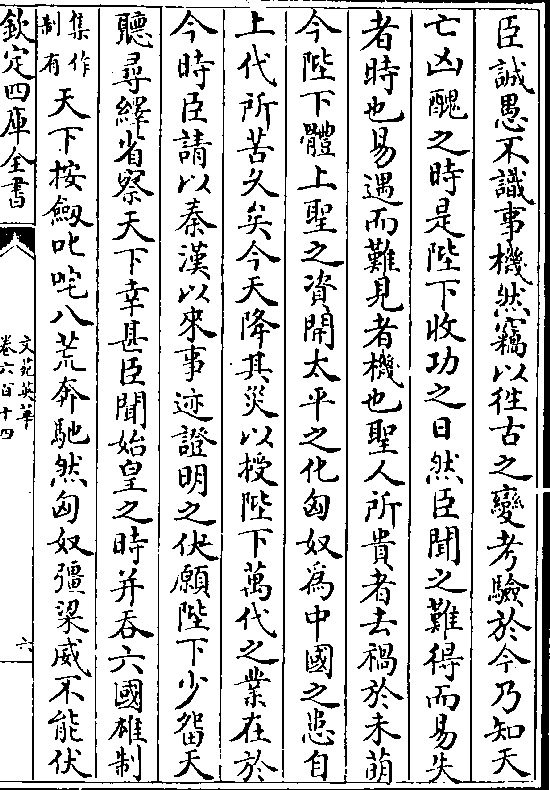 臣誠愚不識事機然竊以徃古之變考驗於今乃知天
亡凶醜之時是陛下收功之日然臣聞之難得而易失
者時也易遇而難見者機也聖人所貴者去禍於未萌
今陛下體上聖之資開太平之化匈奴爲中國之患自
上代所苦久矣今天降其災以授陛下萬代之業在於
今時臣請以秦漢以來事迹證明之伏願陛下少留天
聽尋繹省察天下幸甚臣聞始皇之時并吞六國雄制
集作制有天下按劔叱咤八荒奔馳然匈奴彊梁威不能伏
欽定四庫全書
文苑英華
卷六百十四
六